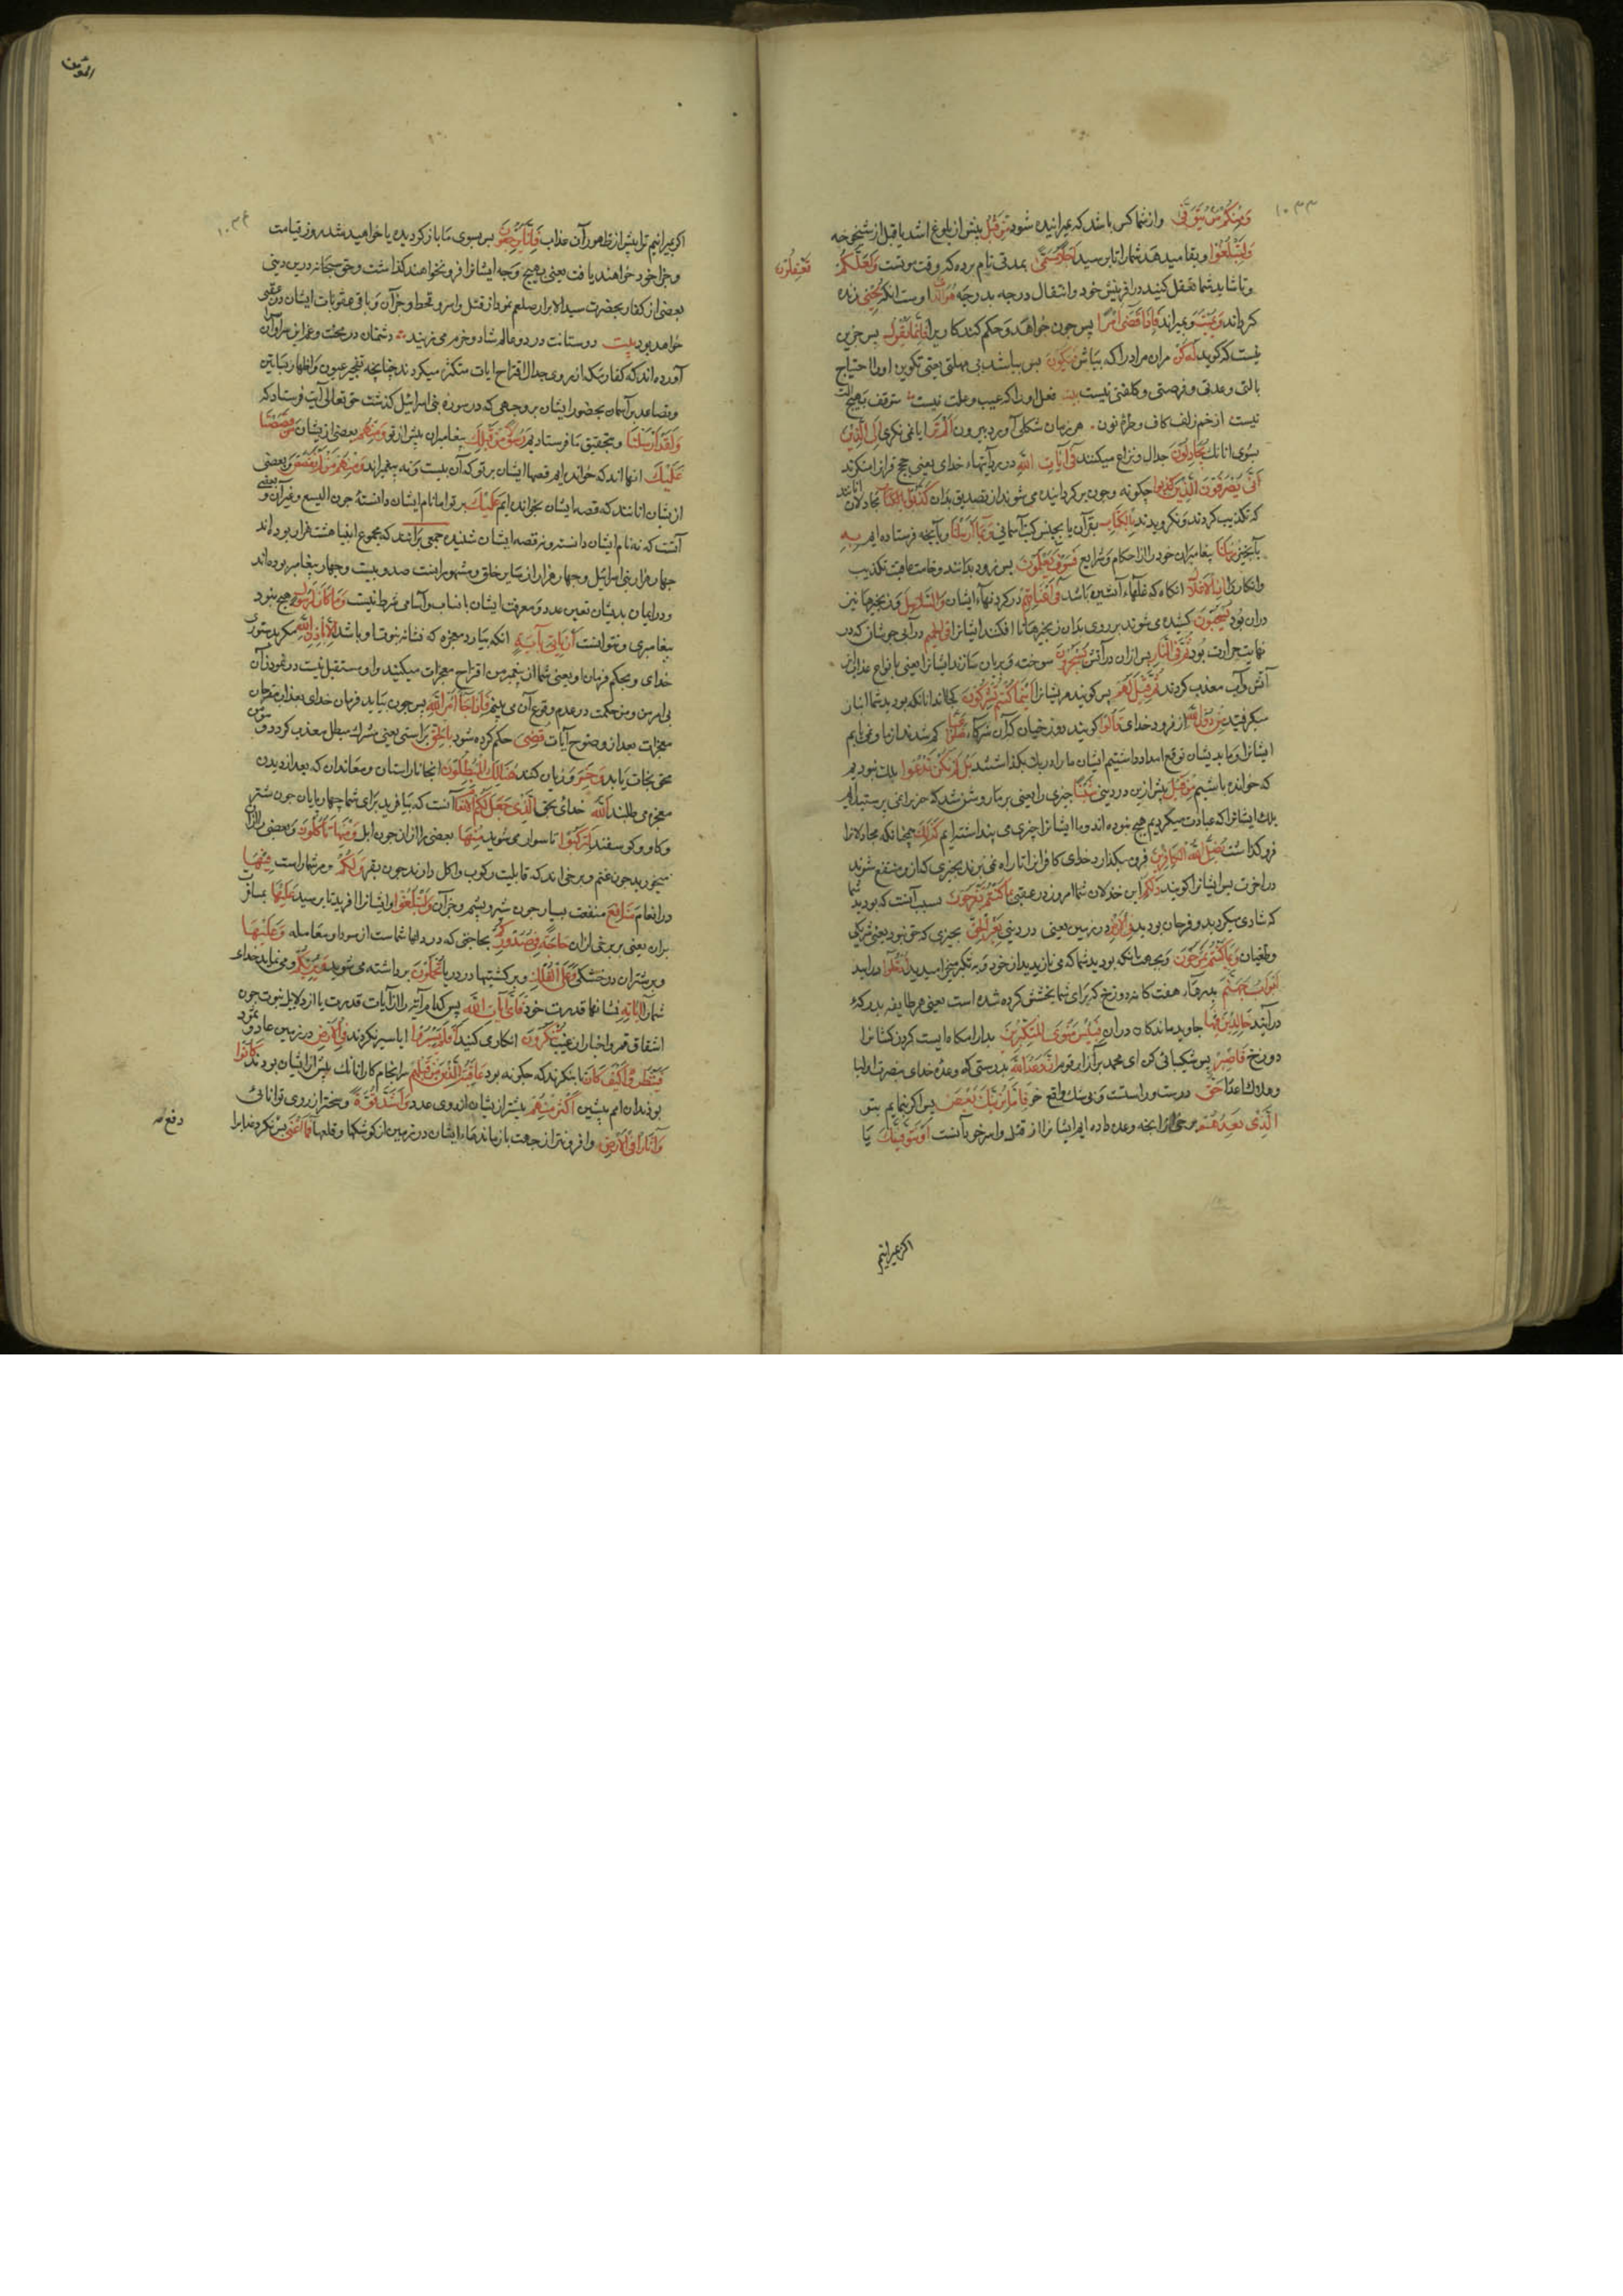 ۱۰۳۳
وَمِنْكُمْ مَنْ يُتَوَفّى وازشما کس باشد که میرانیده شود مِنْ قَبْلُ پیش از بلوغ اشد یا قبل از شیخوخه
وَلِتَبْلُغُوا وبقا میدهد شمارا تا برسید اَجَلًا مُسَمًّى بمدتی نام برده که وقت موتست وَلَعَلَّكُمْ تَعْقِلُونَ
وتا شاید شما تعقل کنید در افرینش خود وانتقال درجه بدرجه هُوَ الَّذِي اوست انکه يُحْيِي زنده
کرداند وَيُمِيتُ ومیراند فَإِذَا قَضَى أَمْرًا پس چون خواهد وحکم کند کاریرا فَإِنَّمَا يَقُولُ پس جزین
نیست که کوید لَهُ كُنْ مران مرادرا که بباش فَيَكُونُ پس بباشد بی مهلتی یعنی تکوین اورا احتیاج
بالتی وعدتی وفرصتی وکلفتی نیست بیت فعل اورا که عیب وعلت نیست متوقف بهیچ الت
نیست از خم زلف کاف وطره نون هر زمان شکلی آورد بیرون اَلَمْ تَرَ ایا نمی نکری اِلَى الَّذِينَ
بسوی انانکه يُجَادِلُونَ جدال ونزاع میکنند فِي آيَاتِ اللَّهِ در آیتهاء خدای یعنی حجج قرانرا منکرند
أَنَّى يُصْرَفُونَ چکونه وچون برکردانیده می شوند از تصدیق بدان الَّذِينَ كَذَّبُوا بِالْكِتَابِ مجادلان انانند
که تکذیب کردند ونکرویدند بِالْكِتَابِ بقرآن یا بجنس کتب آسمانی وَبِمَا أَرْسَلْنَا وبآنچه فرستاده ایم بِهِ
بآنچیز رُسُلَنَا پیغامبران خودرا از احکام وشرایع فَسَوْفَ يَعْلَمُونَ پس زود بدانند وخامت عاقبت تکذیب
وانکاررا إِذِ الْأَغْلَالُ انکاه که غلهاء آتشین باشد فِي أَعْنَاقِهِمْ در کردنهاء ایشان وَالسَّلَاسِلُ وزنجیرها نیز
دران بود يُسْحَبُونَ کشیده می شوند بر روی بدان زنجیرها تا افکنند ایشانرا فِي الْحَمِيمِ در آبی جوشان که در
نهایت حرارت بود ثُمَّ فِي النَّارِ پس ازان در آتش يُسْجَرُونَ سوخته وبریان سازند ایشانرا یعنی بانواع عذاب از
آتش وآب معذب کردند ثُمَّ قِيلَ لَهُمْ پس کویند مریشانرا أَيْنَمَا كُنْتُمْ تُشْرِكُونَ کجااند انانکه بودید شما انباز
میکرفتید مِنْ دُونِ اللَّهِ از فرود خدای قَالُوا کویند دوزخیان که آن شرکاء ضَلُّوا عَنَّا کم شدند از ما ونمی یابیم
ایشانرا وما بدیشان توقع امداد داشتیم ایشان مارا در بلا بکذاشتند بَلْ لَمْ نَكُنْ نَدْعُوا بلکه نبودیم
که خوانده باشیم مِنْ قَبْلُ پیش ازین در دنیی شَيْئًا چیزی را یعنی بر ما روشن شد که چیزی نمی پرستیدیم
بلکه ایشانرا که عبادت میکردیم هیچ نبوده اند وما ایشانرا چیزی می پنداشتیم كَذَلِكَ همچنانکه مجادلانرا
فرو کذاشت يُضِلُّ اللَّهُ الْكَافِرِينَ فرو میکذارد خدای کافرانرا تا راه نمی برند بچیزی که ازو منتفع شوند
در اخرت پس ایشانرا کویند ذَلِكُمْ این خذلان شما امروز در عقبی بِمَا كُنْتُمْ تَفْرَحُونَ بسبب آنست که بودید شما
که شادی میکردید وفرحان بودید فِي الْأَرْضِ در زمین یعنی در دنیی بِغَيْرِ الْحَقِّ بچیزی که حق نبود یعنی شرک
وطغیان وَبِمَا كُنْتُمْ تَمْرَحُونَ وبجهت انکه بودید شما که می نازیدید از خود وبتکبر میخرامیدید ادْخُلُوا درایید
أَبْوَابَ جَهَنَّمَ بدرهاء هفت کانه دوزخ که برای شما بخشش کرده شده است یعنی هر طایفه بدرکه
درآیند خَالِدِينَ فِيهَا جاوید ماندکان دران فَبِئْسَ مَثْوَى الْمُتَكَبِّرِينَ بد آرامکاه ایست کردن کشانرا
دوزخ فَاصْبِرْ پس شکیبائی کن ای محمد بر آزار قوم إِنَّ وَعْدَ اللَّهِ بدرستی که وعده خدای بنصرت اولیا
وهلاک اعدا حَقٌّ درست وراست وبی شک واقع خو فَإِمَّا نُرِيَنَّكَ بَعْضَ پس اکر بنماییم بتو
الَّذِي نَعِدُهُمْ برخی ازانچه وعده داده ایم ایشانرا از قتل واسر خوبآنست أَوْ نَتَوَفَّيَنَّكَ یا
اکر میرانیم
المؤمن
۱۰۳۴
اکر میرانیم ترا پیش از ظهور آن عذاب فَإِلَيْنَا يُرْجَعُونَ پس بسوی ما باز کردیده یا خواهید شد روز قیامت
وجزا خود خواهند یافت یعنی بهیچ وجه ایشانرا فرو نخواهند کذاشت وحق سبحانه درین دینی
بعضی از کفار بحضرت سید الابرار صلعم نمود از قتل واسر وقحط وجز آن وباقی عقوبات ایشان در عقبی
خواهد بود بیت دوستانت در دو عالم شاد وخرم می زیند دشمنان در محنت وغم
آورده اند که کفار مکه از روی جدال اقتراح ایات متکثر میکردند چنانچه تفجیر عیون واظهار بساتین
وتصاعد بر آسمان بحضور ایشان بر وجهی که در سوره بنی اسرائیل کذشت حق تعالی آیت فرستاد که
وَلَقَدْ أَرْسَلْنَا وبتحقیق ما فرستادیم رُسُلًا مِنْ قَبْلِكَ پیغامبران پیش از تو مِنْهُمْ بعضی ازیشان مَنْ قَصَصْنَا
عَلَيْكَ انها اند که خوانده ایم قصها ایشان بر تو که آن بیست ونه پیغمبراند وَمِنْهُمْ مَنْ لَمْ نَقْصُصْ وبعضی
ازیشان انانند که قصه ایشان نخوانده ایم عَلَيْكَ بر تو اما نام ایشان دانستهٔ چون الیسع وغیر آن وبعضی
آنست که نه نام ایشان دانستهٔ ونه قصه ایشان شنیده جمعی برانند که مجموع انبیا هشت هزار بوده اند
چهار هزار بنی اسرائیل وچهار هزار از سایر خلق ومشهور اینست صد وبیست وچهار پیغامبر بوده اند
ودر ایمان بدیشان تعیین عدد ومعرفت ایشان بانساب وآسامی شرط نیست وَمَا كَانَ لِرَسُولٍ هیچ نبود
پیغامبری ونتوانست أَنْ يَأْتِيَ بِآيَةٍ انکه بیارد معجزه که نشانه نبوت او باشد إِلَّا بِإِذْنِ اللَّهِ مکر بدستوری
خدای وبحکم فرمان او یعنی شما از پیغمبر من اقتراح معجزات میکنید واو مستقل نیست در نمودن آن
بی امر من ومن حکمت در عدم وقوع آن می بینم فَإِذَا جَاءَ أَمْرُ اللَّهِ پس چون بیاید فرمان خدای بعذاب مقترحان
معجزات بعد از وضوح آیات قُضِيَ حکم کرده شود بِالْحَقِّ براستی یعنی مشرک مبطل معذب کردد ومؤمن
محق نجات یابد وَخَسِرَ وزیان کنند هُنَالِكَ الْمُبْطِلُونَ انجا ناراستان ومعاندان که بعد از دیدن
معجزه می طلبند اللَّهُ خدای بحق الَّذِي جَعَلَ لَكُمُ الْأَنْعَامَ آنست که بیافرید برای شما چهارپایان چون شتر
وکاو وکوسفند لِتَرْكَبُوا تا سوار می شوید مِنْهَا بعضی را ازان چون ابل وَمِنْهَا تَأْكُلُونَ وبعضی را ازان
میخورید چون غنم وبرخی اند که قابلیت رکوب واکل دارند چون بقر وَلَكُمْ ومر شماراست فِيهَا
در انعام مَنَافِعُ منفعت بسیار چون شیر وپشم وجز آن وَلِتَبْلُغُوا وایشانرا افرید تا برسید عَلَيْهَا بمسافرت
بران یعنی بر برخی ازان حَاجَةً فِي صُدُورِكُمْ بحاجتی که در دلها شماست از سودا ومعامله وَعَلَيْهَا
وبر شتران در خشکی وَعَلَى الْفُلْكِ وبر کشتیها در دریا تُحْمَلُونَ برداشته می شوید وَيُرِيكُمْ ومی نماید خداء
شمارا آيَاتِهِ نشانها قدرت خود فَأَيَّ آيَاتِ اللَّهِ پس کدام آیترا از آیات قدرت یا از دلایل نبوت چون
اشقاق قمر واخبار از غیب تُنْكِرُونَ انکاری کنید أَفَلَمْ يَسِيرُوا ایا سیر نکردند فِي الْأَرْضِ در زمین عاد وثمود
فَيَنْظُرُوا كَيْفَ كَانَ تا بنکرند که چکونه بود عَاقِبَةُ الَّذِينَ مِنْ قَبْلِهِمْ سرانجام کار انانکه پیش از ایشان بودند كَانُوا
بودند ان امم پیشین أَكْثَرَ مِنْهُمْ بیشتر ازیشان از روی عدد وَأَشَدَّ قُوَّةً وسختر از روی توانائی
وَآثَارًا فِي الْأَرْضِ وافزونتر از جهت بازماندهاء ایشان در زمین از کوشکها وقلعها فَمَا أَغْنَى پس نکرد
دفع